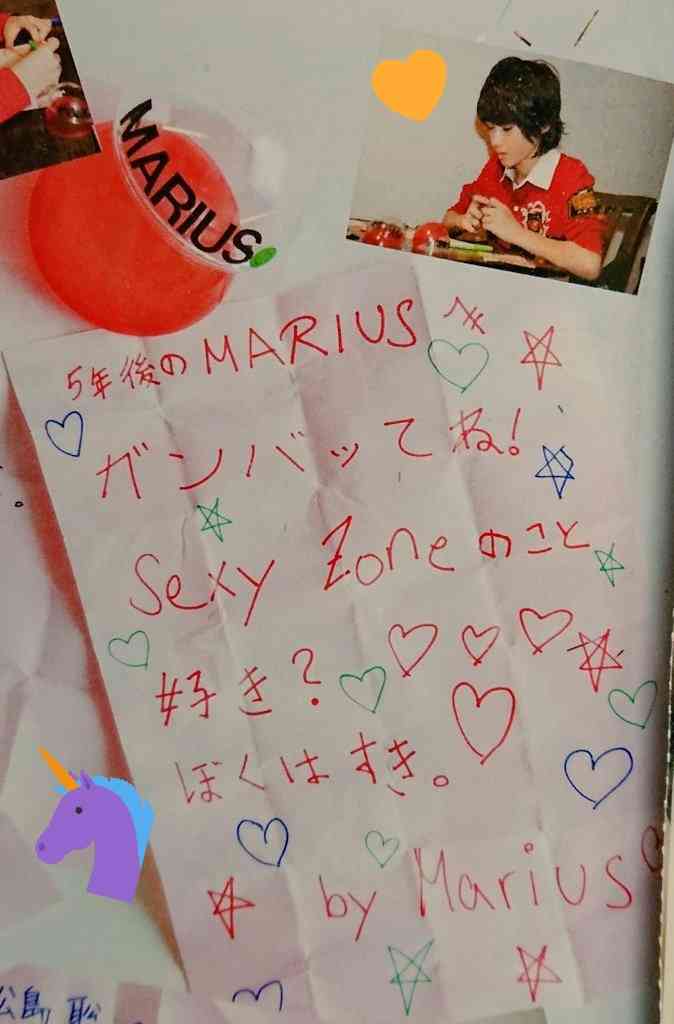 MARIUS
5年後のMARIUSへ
ガンバッてね!
Sexy Zoneのこと
好き?
ぼくはすき。
by Marius
松島 聡